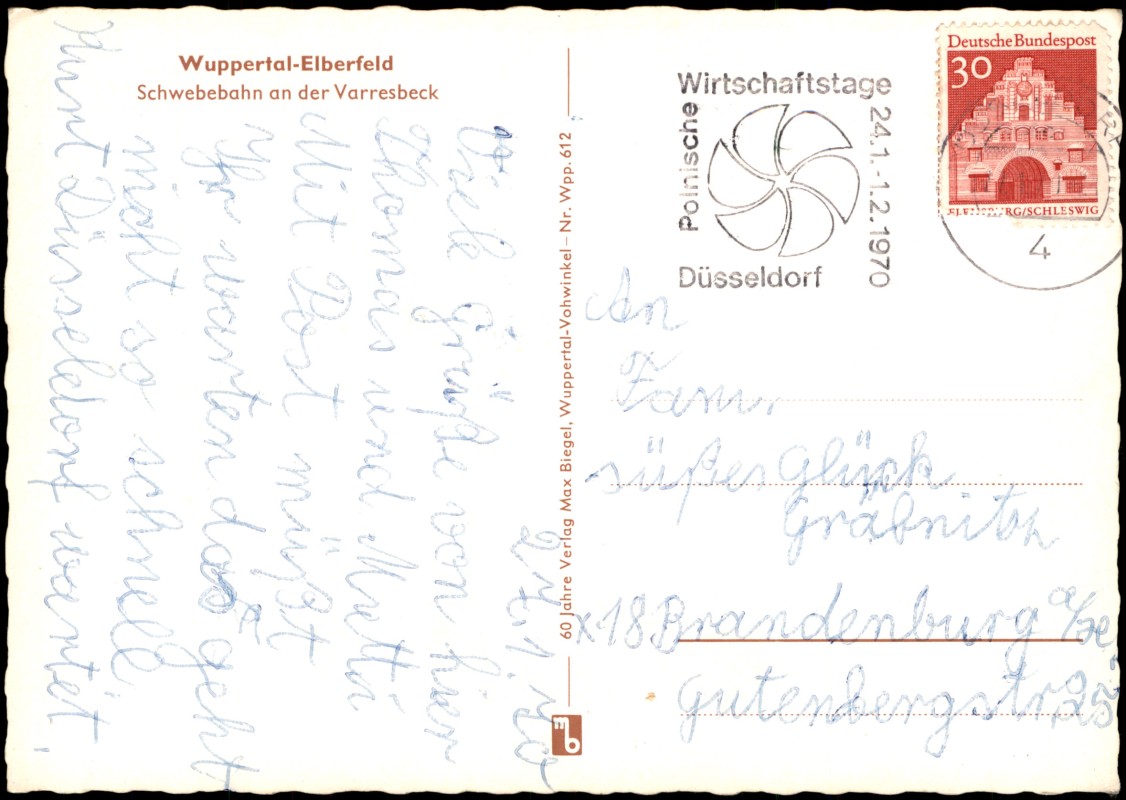 Wuppertal-Elberfeld
Schwebebahn an der Varresbeck
Viele Grüße von hier
Thomas und Mutti
Mit Post müßt
Ihr warten das geht
nicht so schnell
Düsseldorf wartet
60 Jahre Verlag Max Biegel, Wuppertal-Vohwinkel – Nr. Wpp. 612
mb
Polnische
Wirtschaftstage
24.1.-1.2.1970
Düsseldorf
Deutsche Bundespost
30
FLENSBURG/SCHLESWIG
4
An
Fam.
süßes Glück
Gräbnitz
x18 Brandenburg
Gutenbergstr